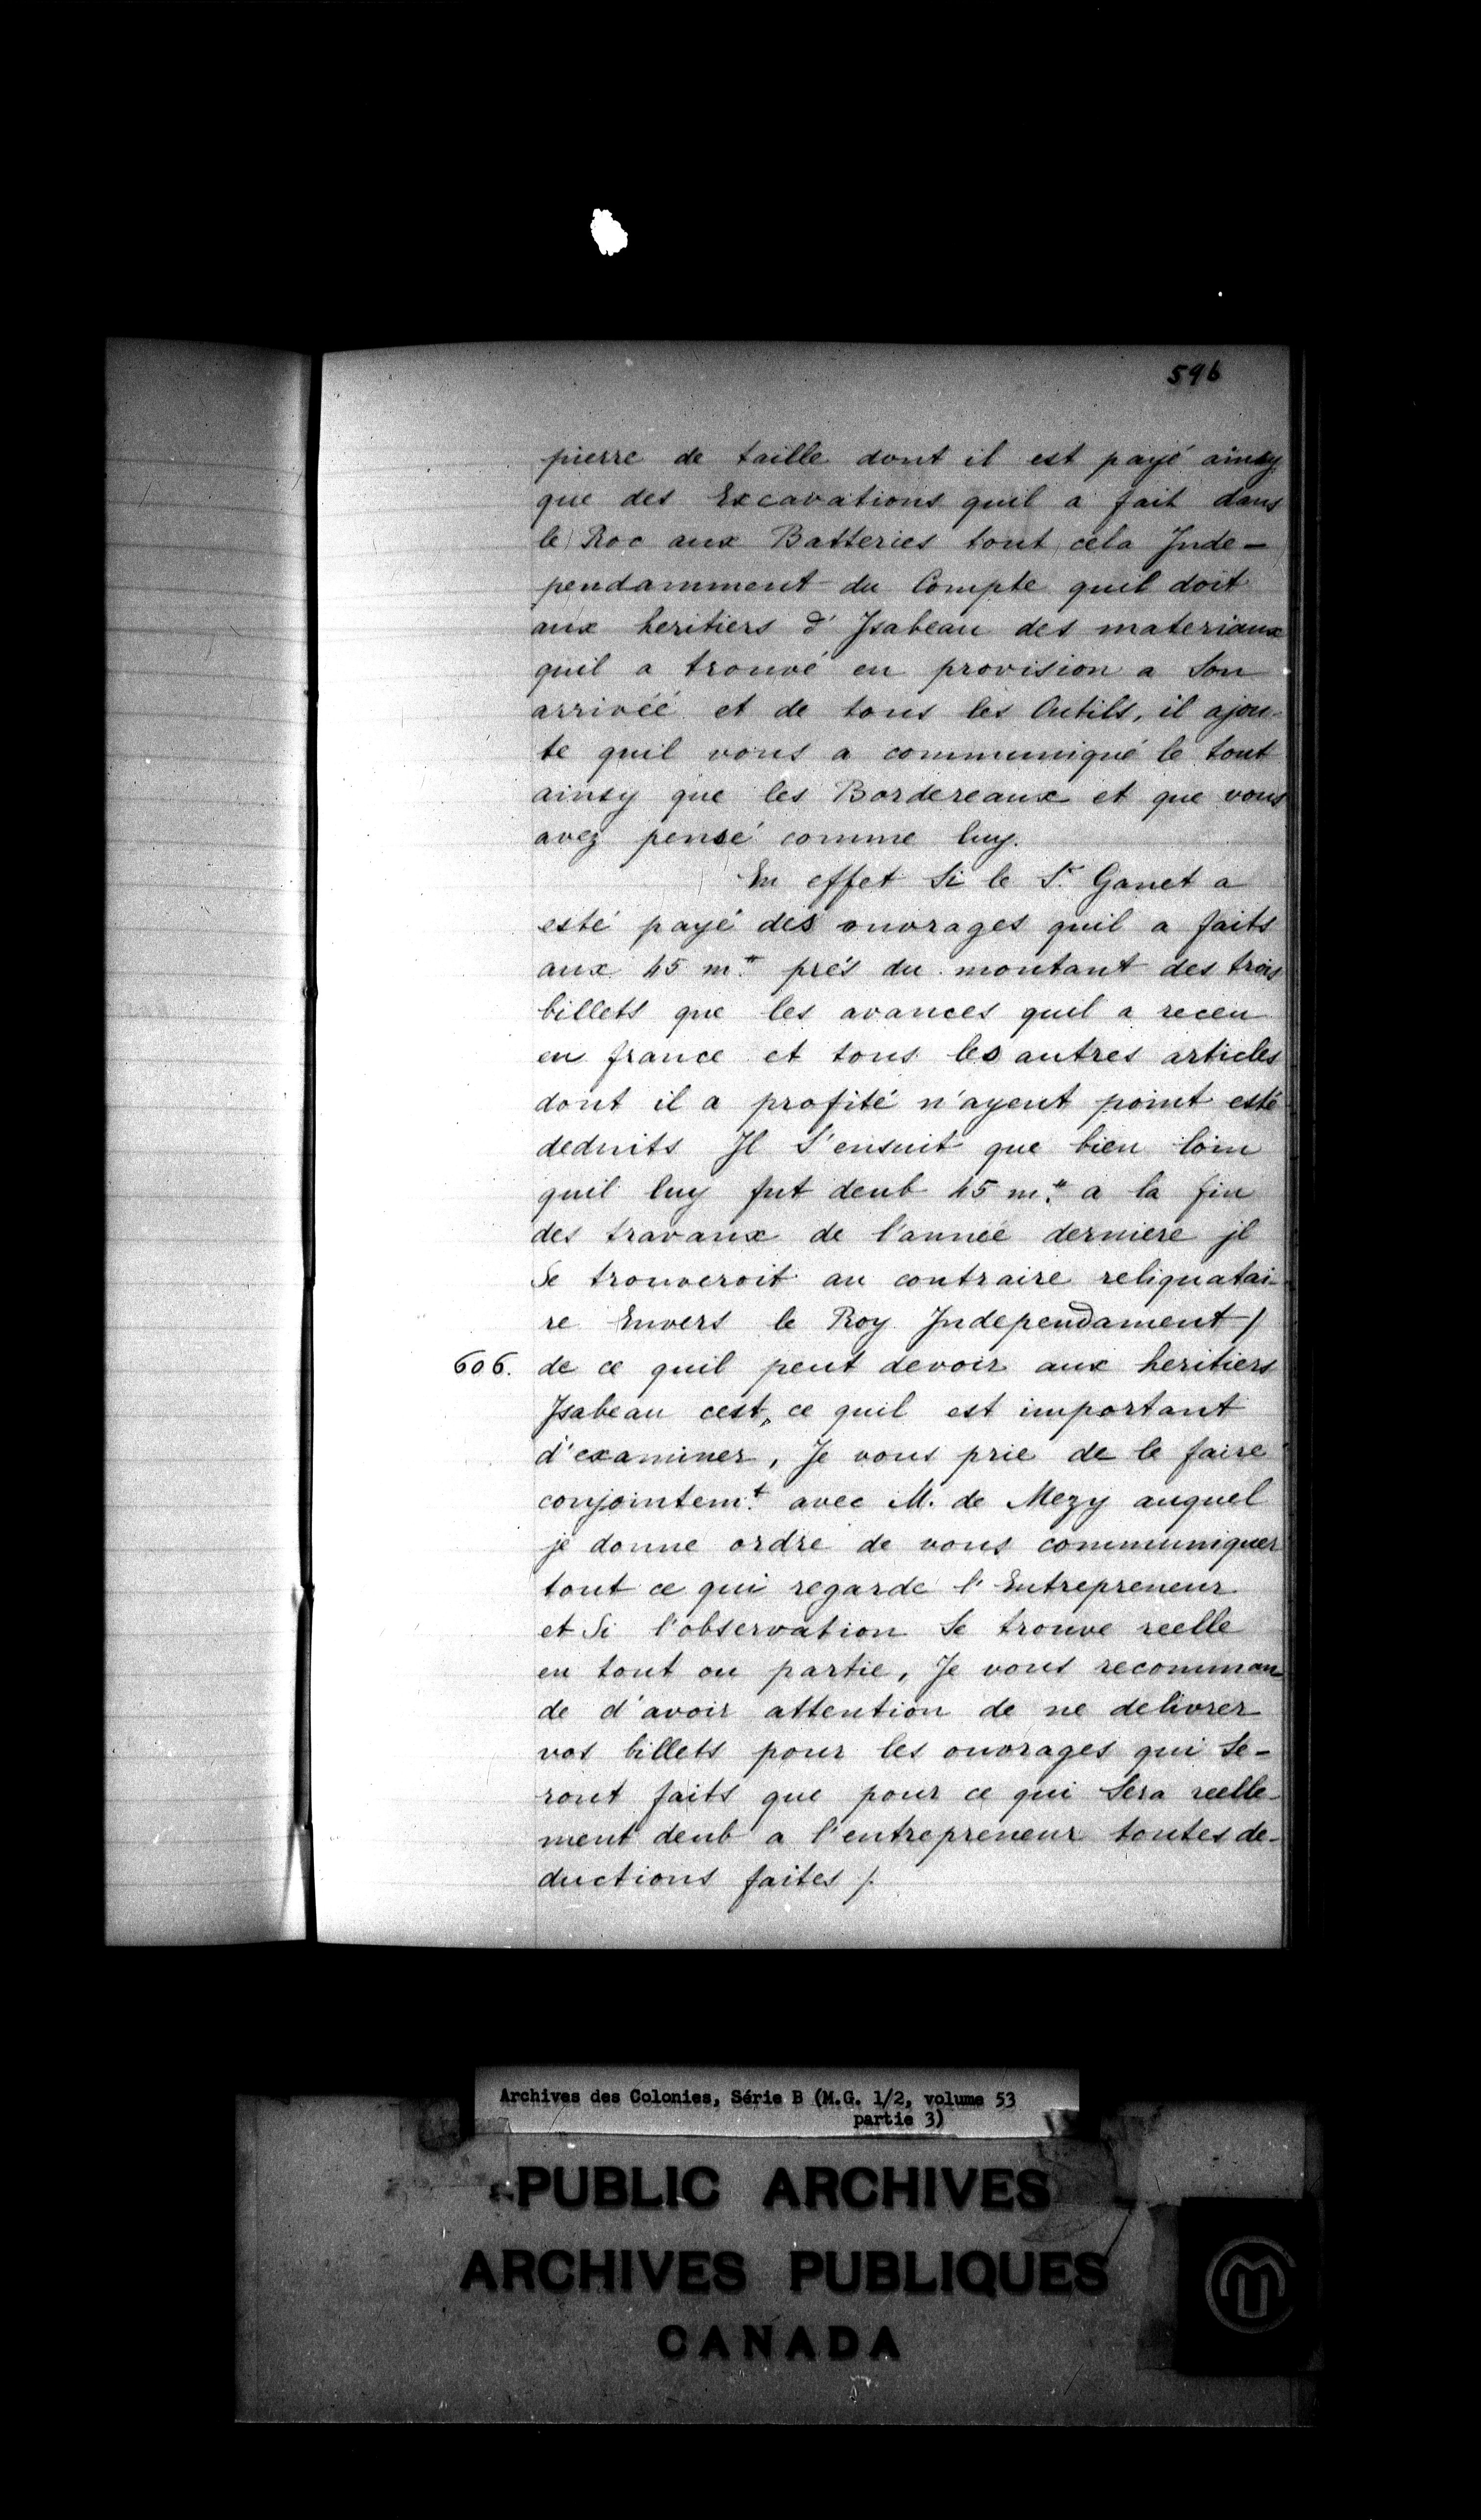 596
pierre de taille dont il est payé ainsy
que des Excavations quil a fait dans
le Roc aux Batteries tout cela Inde-
pendamment du Compte quil doit
aux heritiers d'Isabeau des materiaux
quil a trouvé en provision a Son
arrivéé et de tous les Outils, il ajou-
te quil vous a communiqué le tout
ainsy que les Bordereaux et que vous
avez pensé comme luy.
En effet Si le Sr. Ganet a
esté payé des ouvrages quil a faits
aux 45 m.# prés du montant des trois
billets que les avances quil a receu
en france et tous les autres articles
dont il a profité n'ayent point esté
deduits Il S'ensuit que bien loin
quil luy fut deub 45 m.# a la fin
des travaux de l'année derniere jl
Se trouveroit au contraire reliquatai-
re Envers le Roy Independament /
606. de ce quil peut devoir aux heritiers
Isabeau cest, ce quil est important
d'examiner, Je vous prie de le faire
conjointem.t avec M. de Mezy auquel
je donne ordre de vous communiquer
tout ce qui regarde l'Entrepreneur
et Si l'observation Se trouve reelle
en tout ou partie, Je vous recomman
de d'avoir attention de ne delivrer
vos billets pour les ouvrages qui Se-
ront faits que pour ce qui Sera reelle-
ment deub a l'entrepreneur toutes de-
ductions faites /.
Archives des Colonies, Série B (M.G. 1/2, volume 53
partie 3)
PUBLIC ARCHIVES
ARCHIVES PUBLIQUES
CANADA